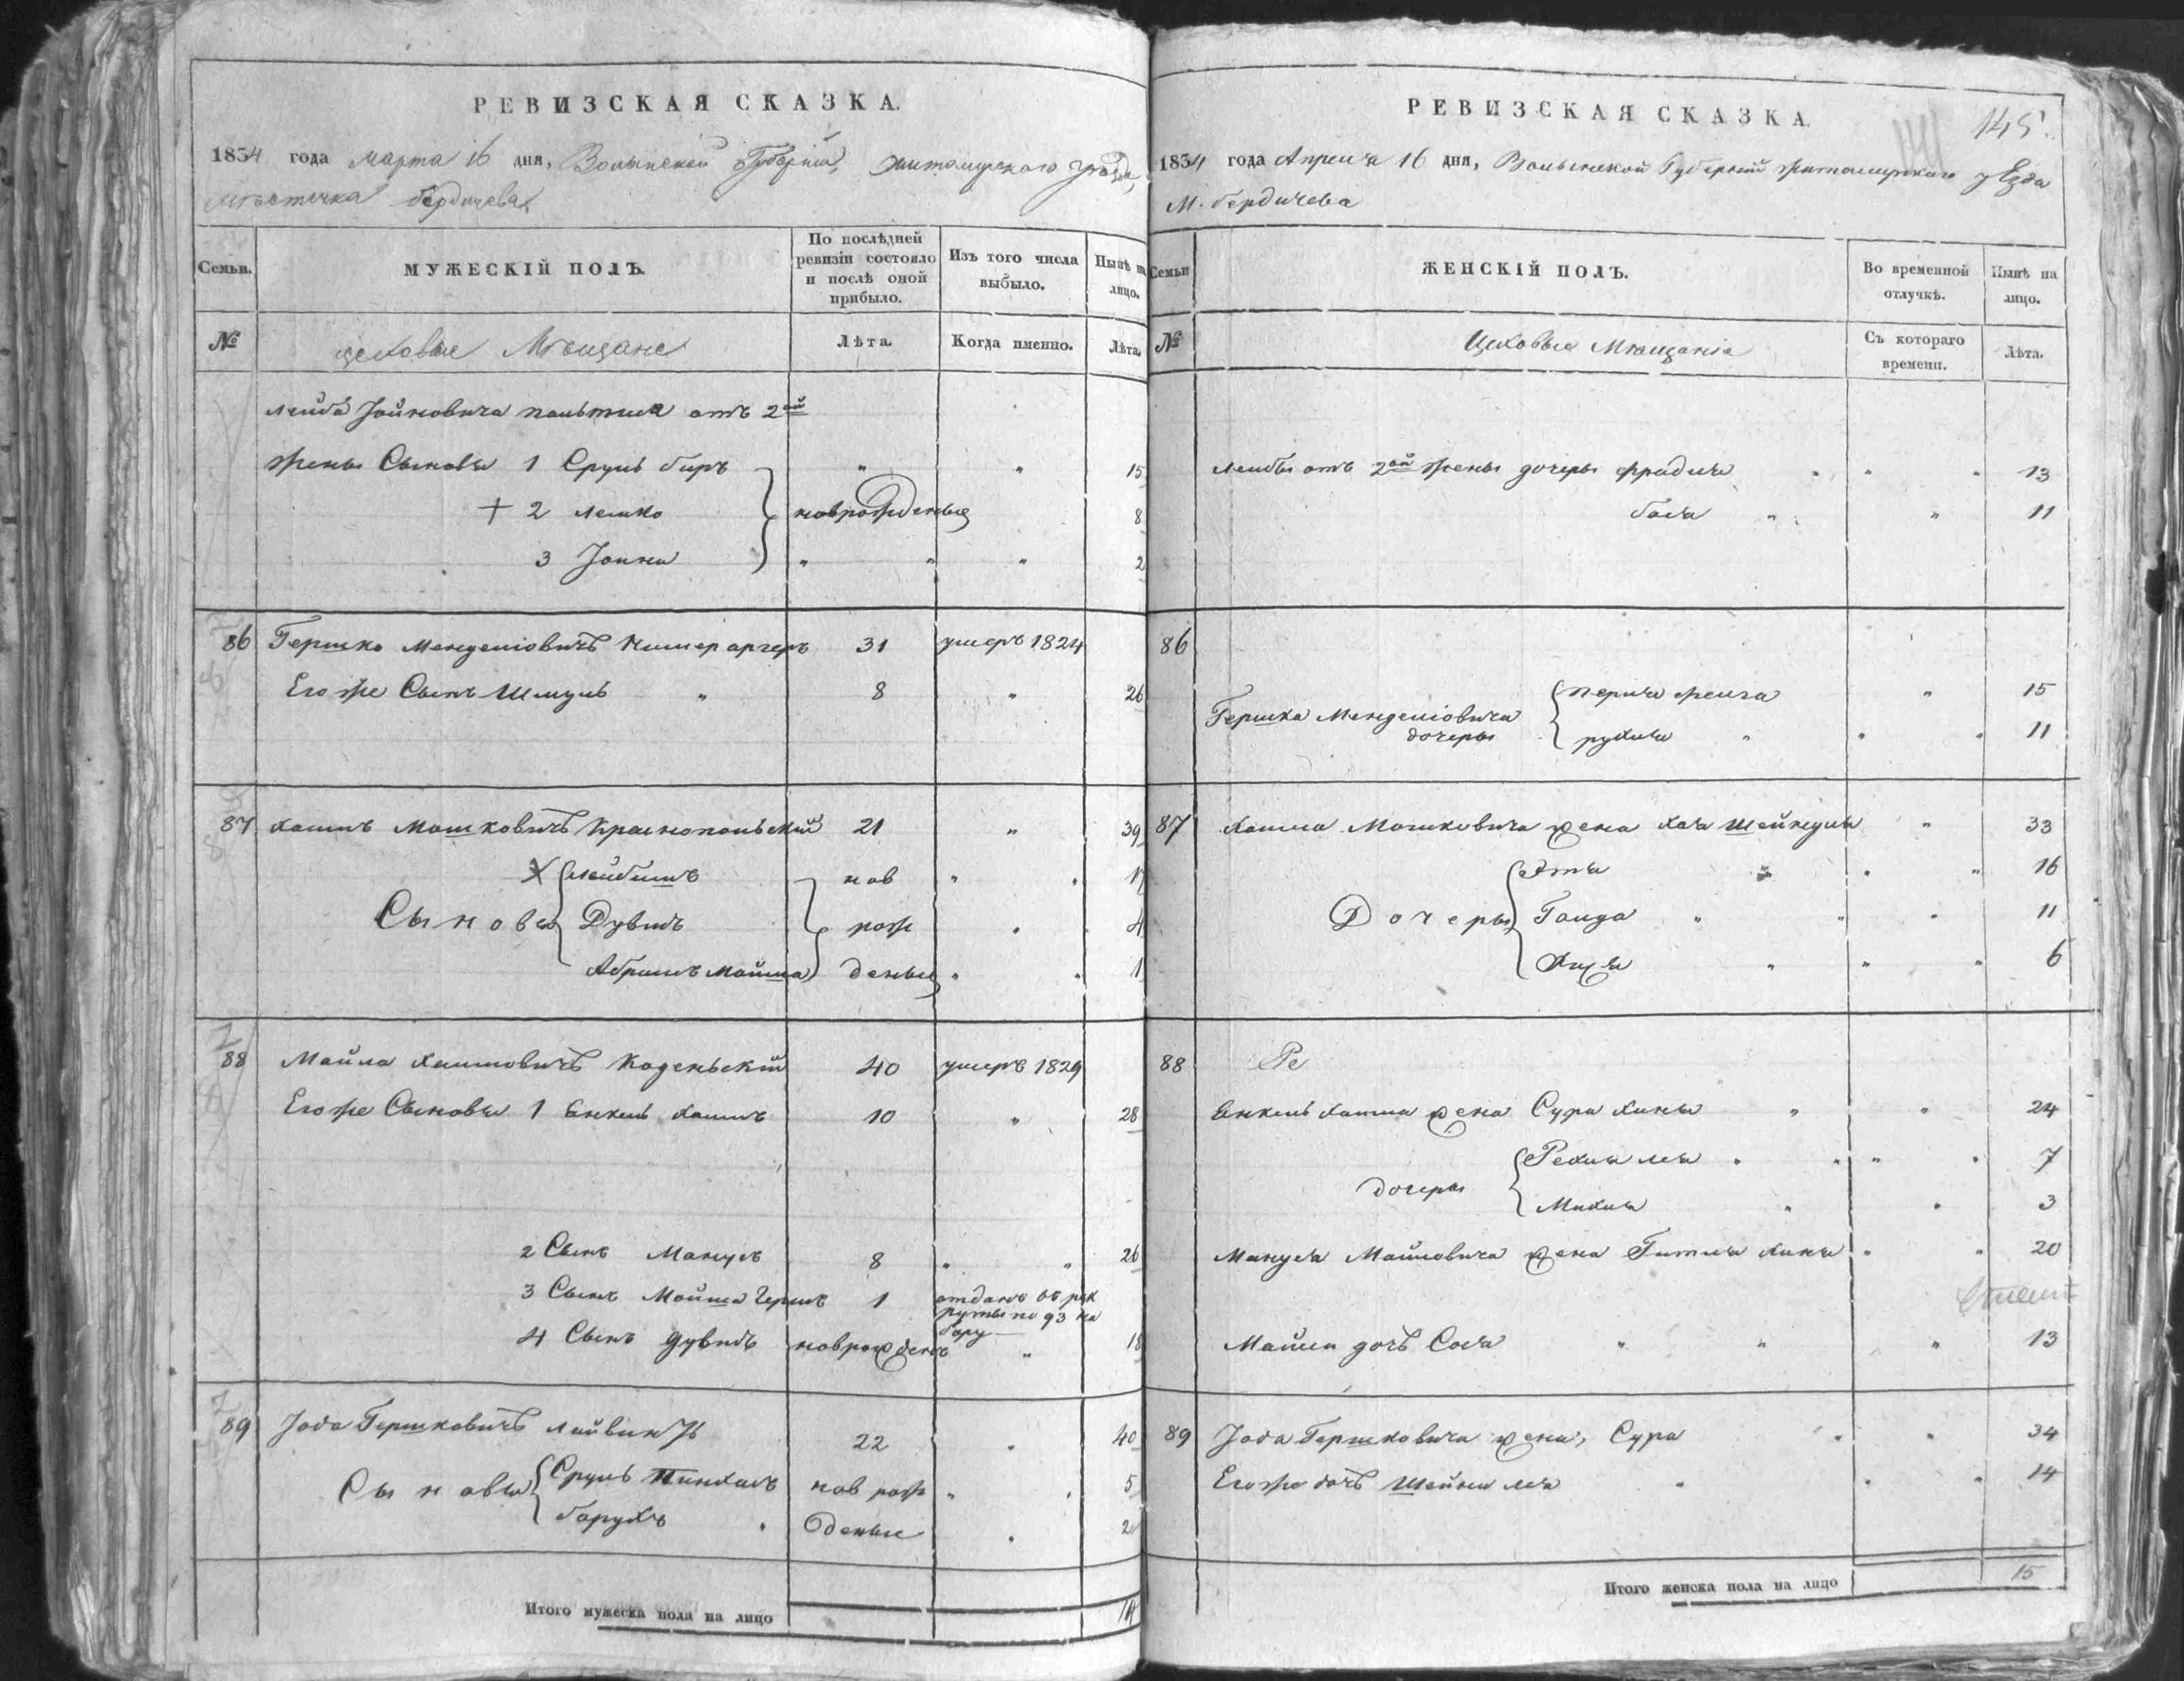 РЕВИЗСКАЯ СКАЗКА.
1834 года марта 16 дня, Волынской Губерніи, Житомирскаго уѣзда,
Мѣстечка бердичева
Семьи.
МУЖЕСКІЙ ПОЛЪ.
По послѣдней ревизіи состояло и послѣ оной прибыло.
Изъ того числа выбыло.
Нынѣ на лицо.
№
цеховые Мѣщане
Лѣта.
Когда именно.
Лѣта.
Лейба Іойновича отъ 2ой
жены Сыновья 1 Сруль беръ " " 15
+ 2 Лейко новорожденные 8
3 Іойна " " " 2
86 Гершко Менделіовичъ 31 умеръ 1824
Его же Сынъ Шмуль " 8 " 26
87 Хаимъ Мошковичъ Краснопольскій 21 " 39
Х Лейбишъ нов " " 17
Сыновья Дувидъ рож " 4
Абрамъ Мойша денные " " 1
88 Майла Хаимовичъ Коденьскій 40 умеръ 1829
Его же Сыновья 1 Енкель Хаимъ 10 " 28
2 Сынъ Манусъ 8 " " 26
3 Сынъ Мойша Гершъ 1 отданъ въ рек
руты по 93 на
бору
4 Сынъ Дувидъ новорожденъ " 18
89 Іосе Гершковичъ 22 " 40
Сыновья Сруль Пинхасъ нов рож " " 5
Борухъ " денные " 2
Итого мужеска пола на лицо 14
РЕВИЗСКАЯ СКАЗКА.
141 145
1834 года Апреля 16 дня, Волынской Губерніи Житомирскаго уЕзда
М. бердичева
Семьи
ЖЕНСКІЙ ПОЛЪ.
Во временной отлучкѣ.
Нынѣ на лицо.
№
Цеховые Мещаніе
Съ котораго времени.
Лѣта.
Лейбы отъ 2ой жены дочеры Фрадля " " " 13
бася " " 11
86
Перля фейга " 15
Гершка Менделіовича
дочеры рухля " " " 11
87 Хаима Мошковича жена Хая Шейндля " 33
Эття " " " 16
Дочеры Голда " " " 11
" " " 6
88 Ре
Енкель Хаима жена Сура Хана " " 24
Рехля лея " " " " 7
дочеры
Михля " " 3
Мануся Майловича жена Гитля Хана " " 20
Майли дочь Сося " " " 13
89 Іосе Гершковича жена, Сура " " 34
Его же дочь Шейна лея " " " 14
Итого женска пола на лицо 15